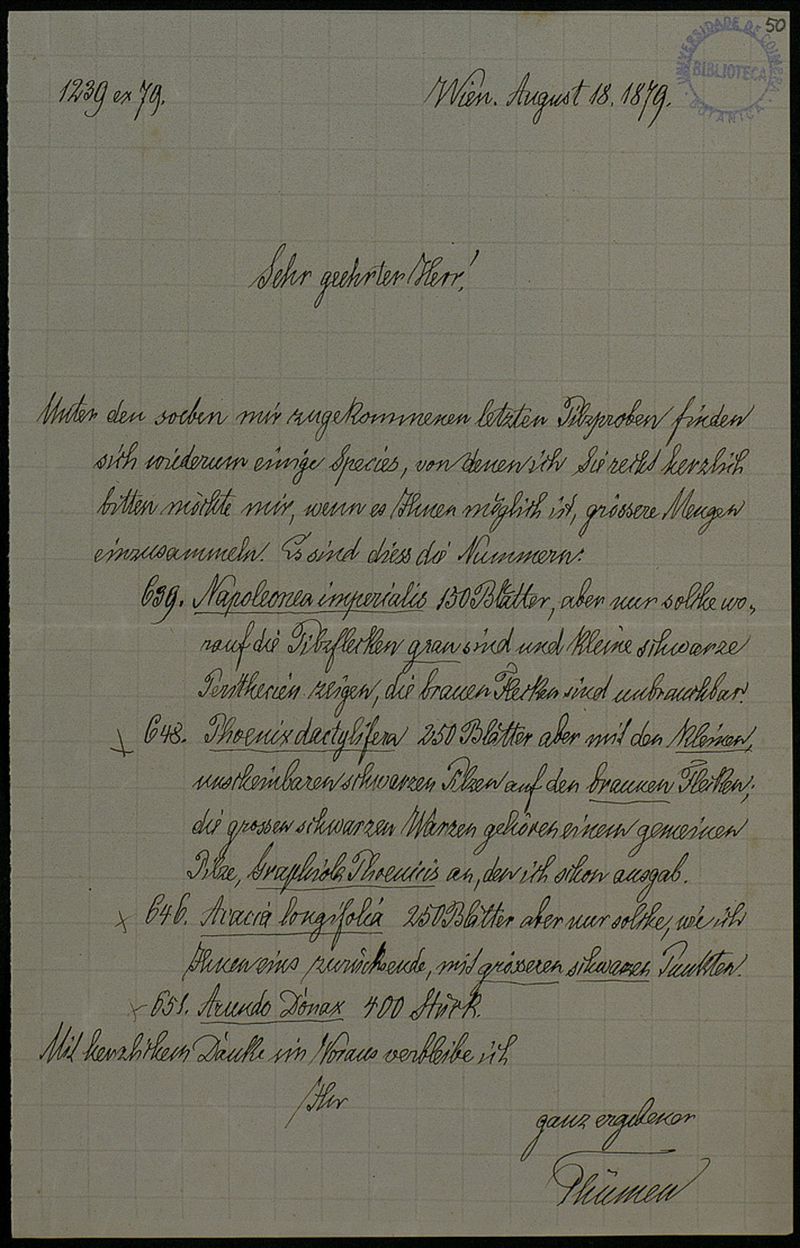 50
UNIVERSIDADE DE COIMBRA
BIBLIOTECA
BOTANICA
1239 ex 79.
Wien. August 18. 1879.
Sehr geehrter Herr!
Unter den soeben mir zugekommenen letzten Pilzproben finden
sich wiederum einige Species, von denen ich Sie recht herzlich
bitten möchte mir, wenn es Ihnen möglich ist, grössere Mengen
einzusammeln. Es sind diess die Nummern:
639. Napoleonea imperialis 150 Blätter, aber nur solche wo-
rauf die Pilzflecken grau sind und kleine schwarze
Perithecien zeigen, die brauen Flecken sind unbrauchbar.
648. Phoenix dactylifera 250 Blätter aber mit den kleinen,
unscheinbaren schwarzen Pilzen auf den braunen Flecken;
die grossen schwarzen Warzen gehören einem gemeinen
Pilze, Graphiola Phoenicis an, den ich schon ausgab.
646. Acacia longifolia 250 Blätter aber nur solche, wie ich
Ihnen eins zurücksende, mit grösseren schwarzen Punkten.
651. Arundo Donax 400 Stück.
Mit herzlichem Danke im Voraus verbleibe ich
Ihr
ganz ergebener
Thümen